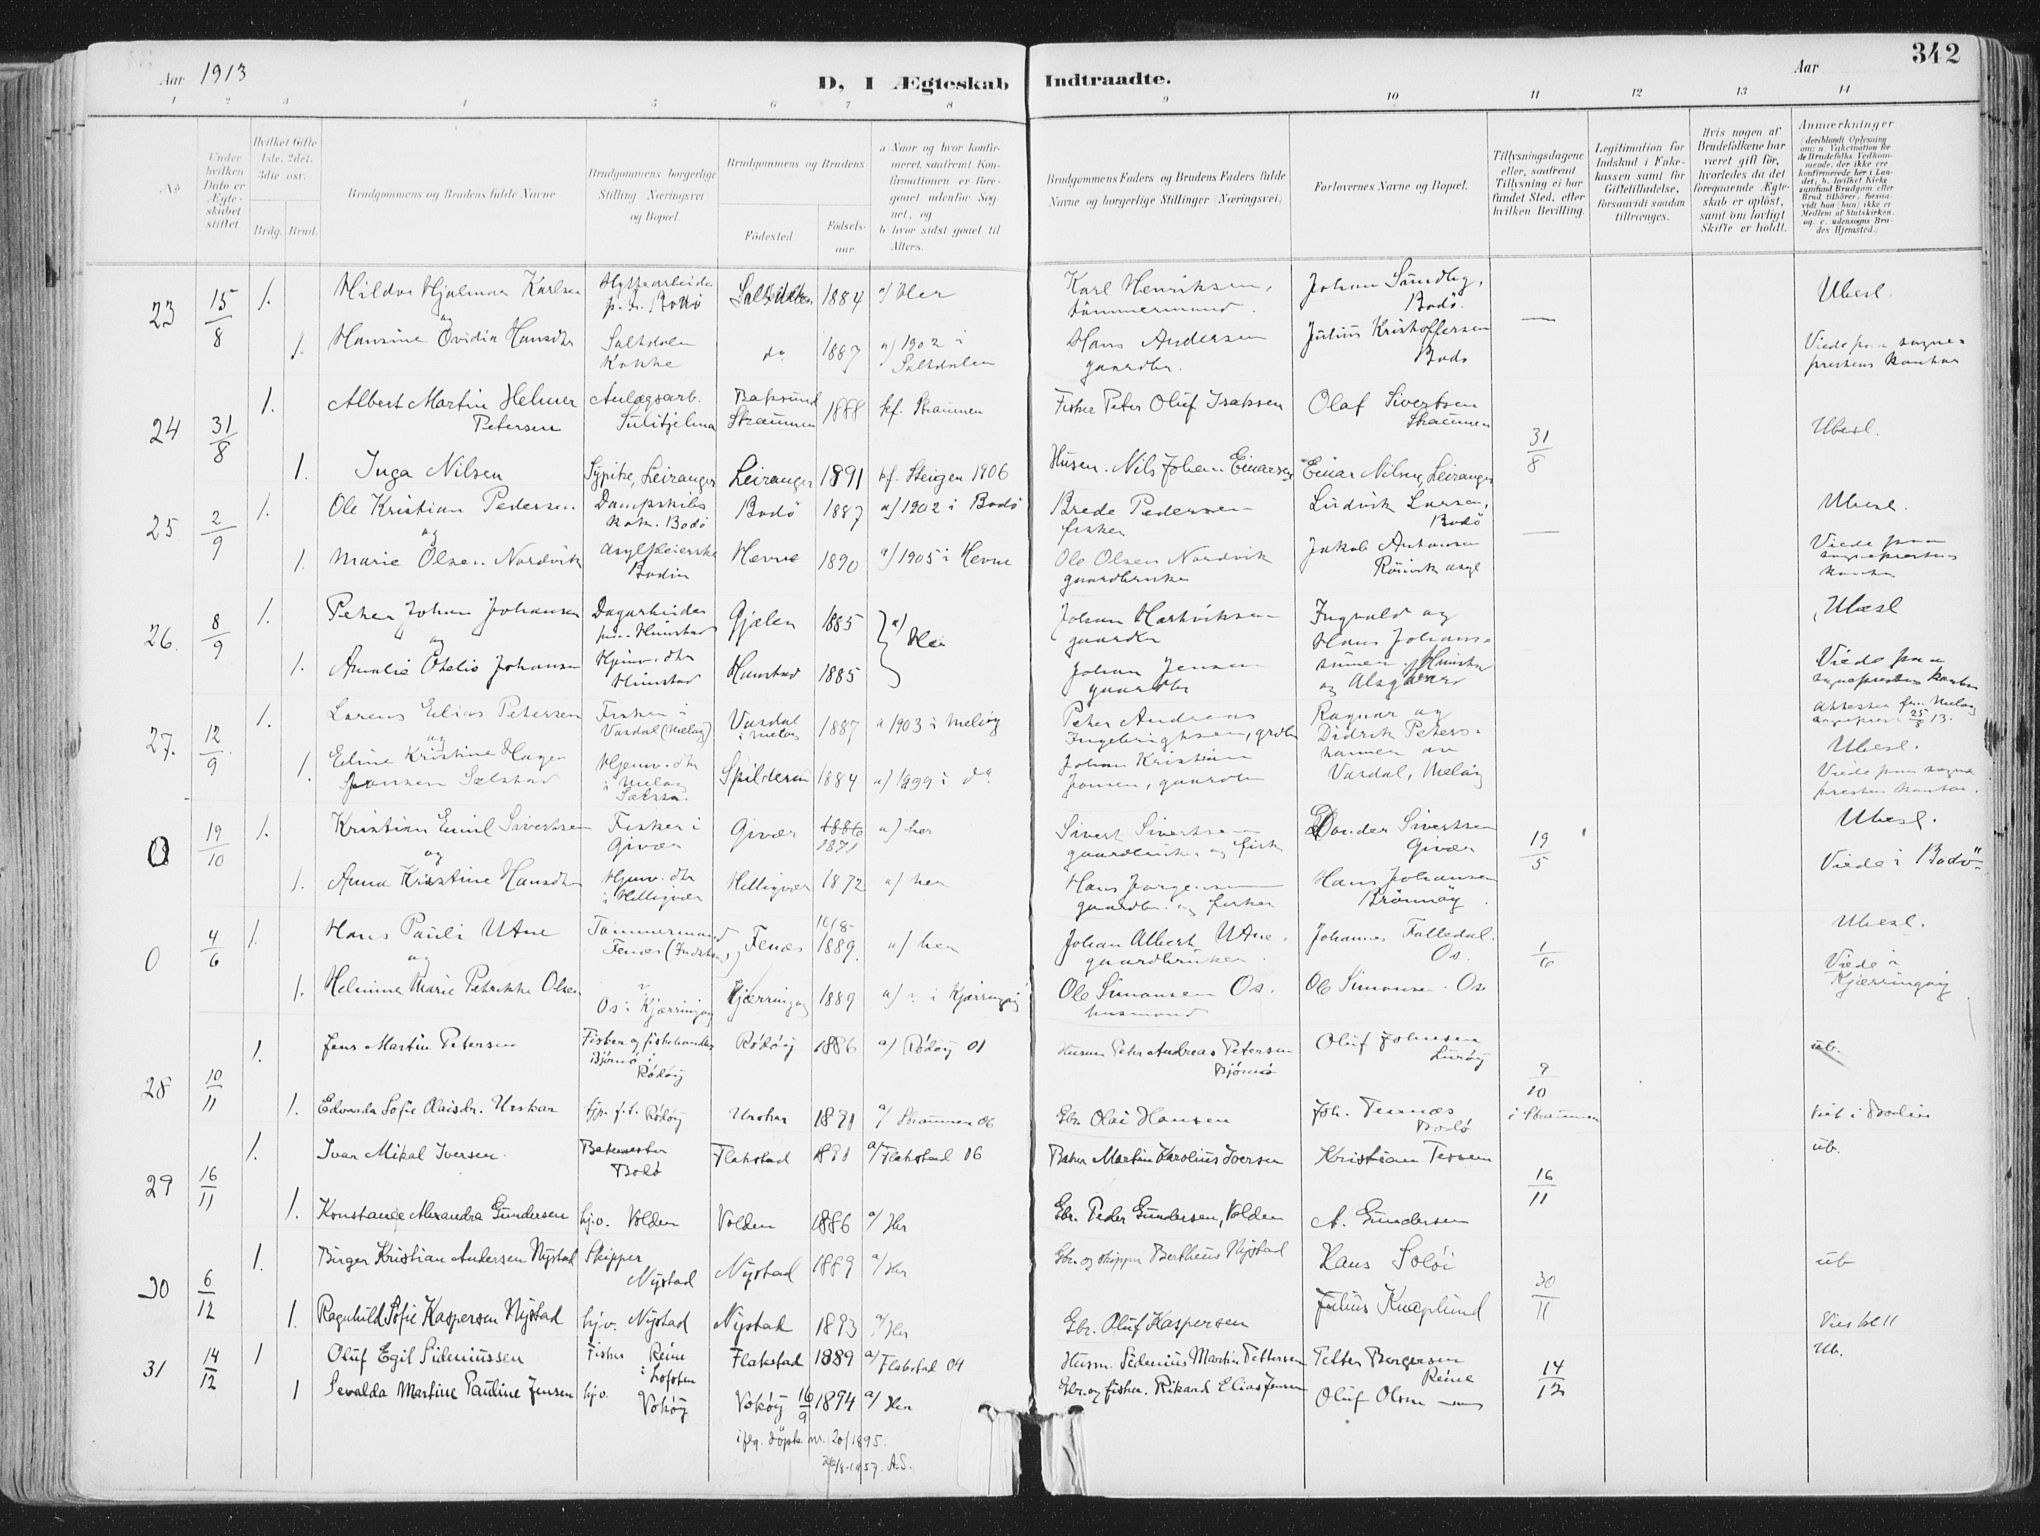 Aar 1913
D, I Ægteskab Indtraadte.
Aar
342
1 2 3 4 5 6 7 8 9 10 11 12 13 14
No
Under hvilken Dato er Ægteskabet stiftet
Hvilket Gifte 1ste, 2det, 3die osv.
Brdg. Brud.
Brudgommens og Brudens fulde Navne
Brudgommens borgerlige Stilling (Næringsvei) og Bopæl.
Brudgommens og Brudens
Fødested.
Fødselsaar.
a Naar og hvor konfirmeret, saafremt Konfirmationen er foregaaet udenfor Sognet, og
b hvor sidst gaaet til Alters.
Brudgommens Faders og Brudens Faders fulde Navne og borgerlige Stillinger (Næringsvei)
Forlovernes Navne og Bopæl.
Tillysningsdagene eller, saafremt Tillysning ei har fundet Sted, efter hvilken Bevilling.
Legitimation for Indskud i Enkekassen samt for Giftetilladelse, forsaavidt saadan tiltrænges.
Hvis nogen af Brudefolkene har været gift før, hvorledes da det foregaaende Ægteskab er opløst, samt om lovligt Skifte er holdt.
Anmerkninger
23 15/8 1. Hildor Hjalmar Karlsen Hytteearbeider p.t. Bodø Saltdalen 1884 a/ Her Karl Henriksen, tømmermand. Johan Sundby, Bodø. — Ubesl.
og
1. Hansine Ovidia Hansdtr Saltdalen Kokke do 1887 a/ 1902 i Saltdalen Hans Andersen gaardbr. Julius Kristoffersen Bodø Viede paa sogneprestens kontor
24 31/8 1. Albert Martin Helmer Petersen Anlægsarb. Sulitjelma Straumen 1888 kf. Straumen Fisker Peter Oluf Isaksen Olaf Sivertsen Straumen 31/8 Ubesl.
1. Inga Nilsen Sypike, Leiranger Leiranger 1891 kf. Steigen 1906 Husm. Nils Johan Einarsen Einar Nilsen, Leiranger
25 2/9 1. Ole Kristian Pedersen Dampskibs kok. Bodø Bodø 1887 a/ 1902 i Bodø Brede Pedersen fisker Ludvik Larsen, Bodø — Ubesl.
og
1. Marie Olsen Nordvik Asylpleierske Bodin Hevne 1890 a/ 1905 i Hevne Ole Olsen Nordvik gaardbruker Jakob Antonsen Rønvik asyl Viede paa sogneprestens kontor
26. 8/9 1. Peter Johan Johansen Dagarbeider Gjælen 1885 a/ Her Johan Hartviksen gaardbr Ingvald og Hans Johans- Ubesl
og
1. Amalie Otelie Johansen Hjemv. dtr Himstad 1885 Johan Jensen gaardbr og Alsgaard Viede paa sogneprestens kontor
27. 12/9 1. Lorens Elias Petersen Fisker i Vasdal (Meløy) Vasdal i Meløy 1887 a 1903 i Meløy Peter Andreas Ingebrigtsen, grdbr Ragnar og Didrik Peters- Attester fra Meløy sognepr. 25/8 13. Ubesl.
og
1. Eline Kristine Hagen Jonsen Selstad Hjemv. dtr i Meløy Spilderen 1884 a/ 1899 i do Johan Kristian Jonsen, gaardbr Vasdal, Meløy Viede paa sogneprestens kontor.
0 19/10 1. Kristian Emil Sivertsen Fisker i Givær Givær 1886 1871 a/ her Sivert Sivertsen gaardbruker og fisker Donder Sivertsen Givær 19/5 Ubesl.
og
1. Anna Kristine Hansdtr Hjemv. dtr i Helligvær Helligvær 1872 a/ her Hans Jørgensen gaardbr. og fisker Hans Johansen Brønnøy. Viede i Bodø
0 4/6 1. Hans Pauli Utne Tømmermand Fenæs Fenæs 1889. a/ her Johan Albert Utne. gaardbruker. Johannes Falledal. Os. 1/6 Ubesl.
og
1. Helmine Marie Petrikke Olsen Os i Kjærringøy Kjærringøy 1889 a/ ? i Kjærringøy Ole Simonsen Os. husmand Ole Simonsen. Os Viede i Kjærringøy
28 10/11 1. Jens Martin Petersen Fisker og fiskehandler Bjørnø i Rødøy Rødøy 1886 a/ Rødøy 01 Husm Petr Andreas Petersen Bjørnø Oluf Johnsen Lurøy 9/10 ub.
1. Edvarda Sofie Olaisdr. Urskar tjp. f.t. Rødøy Urskar 1891 a/ Straumen 06 Gbr. Olai Hansen Joh. Ternæs Bodø i Straumen Viet i Bodin
29 16/11 1. Ivar Mikal Iversen. Bakermester Bodø Flakstad 1891 a/ Flakstad 06 Baker Martin Karolius Iversen Kristian Tessem 16/11 ub.
1. Konstance Alexandra Gundersen hj.v. Volden Volden 1886 a/ Her Gbr. Peder Gundersen, Volden A. Gundersen
30 6/12 1. Birger Kristian Andersen Nystad Skipper Nystad Nystad 1889 a/ Her Gbr. og skipper Bertheus Nystad Hans Soløi 30/11 ub
1. Ragnhild Sofie Kaspersen Nystad hj.v. Nystad Nystad 1893 a/ Her Gbr. Oluf Kaspersen Julius Knaplund Vies kl 11
31 14/12 1 Oluf Egil Sideniussen Fisker Reine i Lofoten Flakstad 1889 a/ Flakstad 04 Husm. Sidenius Martin Pettersen Petter Bergersen Reine 14/12 Ub.
1 Sevalda Martine Pauline Jensen hj.v. Vokøy Vokøy 16/9 1894 a/ Her Gbr. og fisker. Rikard Elias Jensen Oluf Olsen
iflg. døpte nr. 20/1895.
A.S.